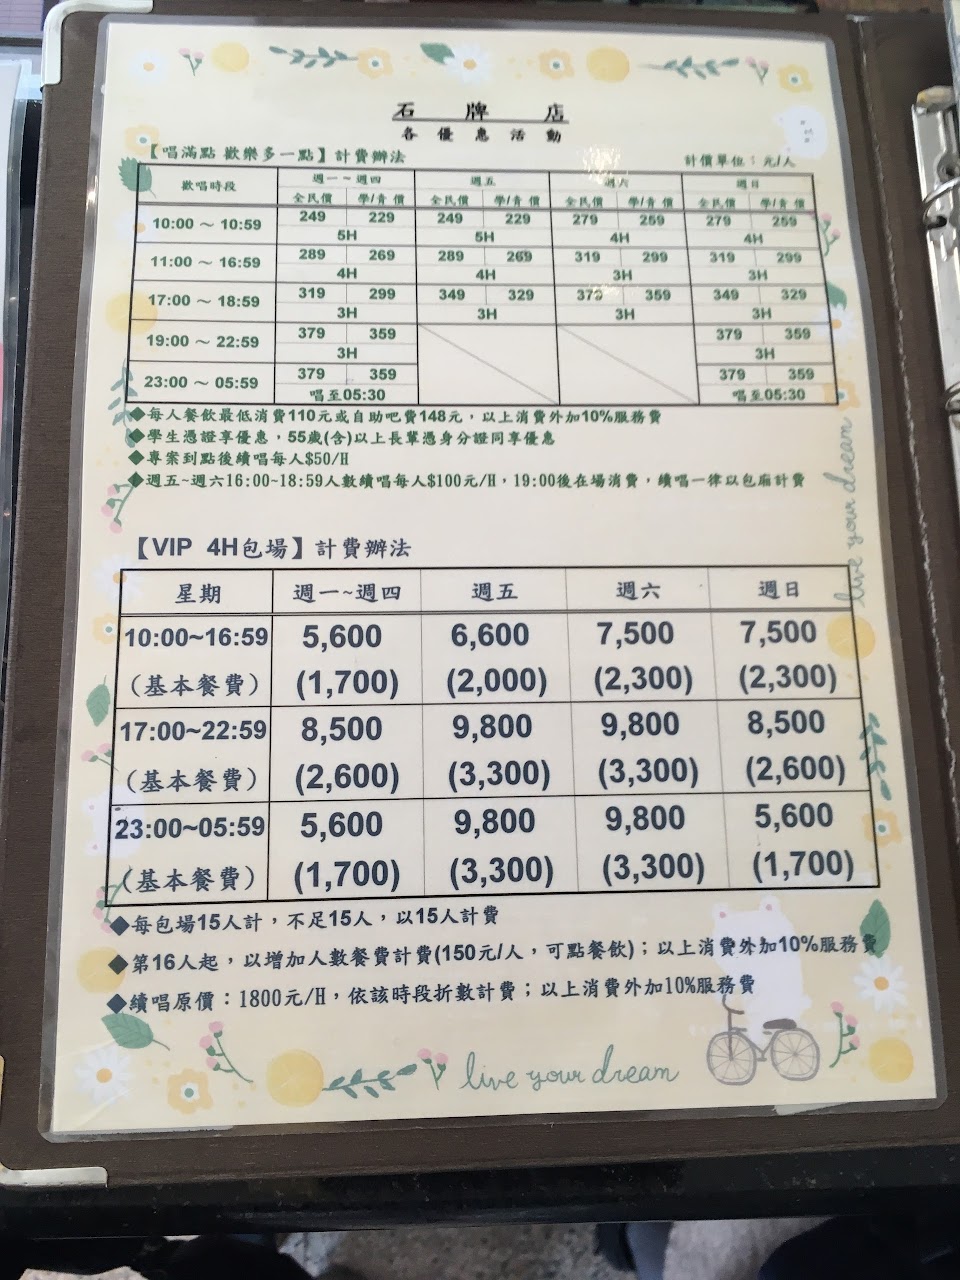 石牌店
各優惠活動
【唱滿點 歡樂多一點】計費辦法 計價單位：元/人
歡唱時段 週一~週四 週五 週六 週日
全民價 學/青價 全民價 學/青價 全民價 學/青價 全民價 學/青價
10:00 ~ 10:59 249 229 249 229 279 259 279 259
5H 5H 4H 4H
11:00 ~ 16:59 289 269 289 269 319 299 319 299
4H 4H 3H 3H
17:00 ~ 18:59 319 299 349 329 379 359 349 329
3H 3H 3H 3H
19:00 ~ 22:59 379 359 379 359
3H 3H
23:00 ~ 05:59 379 359 379 359
唱至05:30 唱至05:30
◆每人餐飲最低消費110元或自助吧費148元，以上消費外加10%服務費
◆學生憑證享優惠，55歲(含)以上長輩憑身分證同享優惠
◆專案到點後續唱每人$50/H
◆週五~週六16:00~18:59人數續唱每人$100元/H，19:00後在場消費，續唱一律以包廂計費
live your dream
【VIP 4H包場】計費辦法
星期 週一~週四 週五 週六 週日
10:00~16:59 5,600 6,600 7,500 7,500
（基本餐費） (1,700) (2,000) (2,300) (2,300)
17:00~22:59 8,500 9,800 9,800 8,500
（基本餐費） (2,600) (3,300) (3,300) (2,600)
23:00~05:59 5,600 9,800 9,800 5,600
（基本餐費） (1,700) (3,300) (3,300) (1,700)
◆每包場15人計，不足15人，以15人計費
◆第16人起，以增加人數餐費計費(150元/人，可點餐飲)；以上消費外加10%服務費
◆續唱原價：1800元/H，依該時段折數計費；以上消費外加10%服務費
live your dream